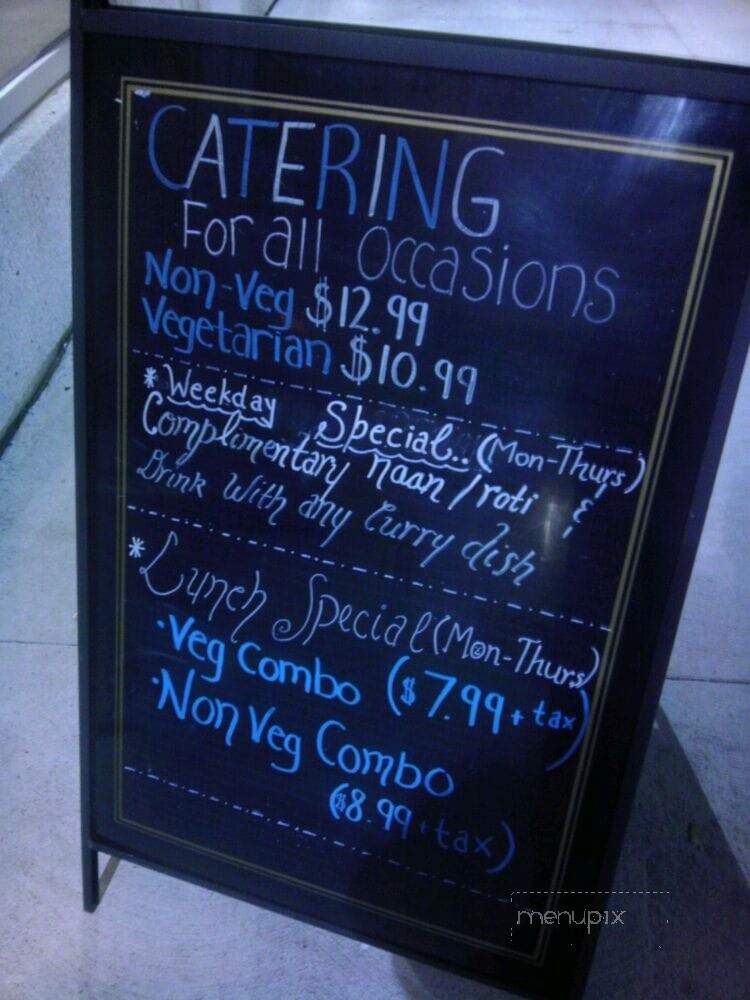 CATERING
For all occasions
Non-Veg $12.99
Vegetarian $10.99
* Weekday Special.. (Mon-Thurs)
Complimentary naan / roti &
Drink With any Curry dish
* Lunch Special (Mon-Thurs)
· Veg Combo ($7.99 + tax)
· Non Veg Combo
($8.99 + tax)
menupix